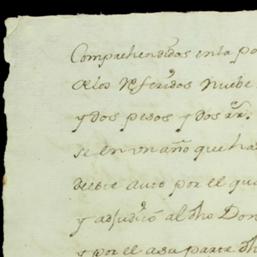 Comprehendidas en la po
de los Referidos nuebe
y dos pesos y dos rr.
se en un año que ha
deeste auto por el qu
y adjudicó al dho Don
y por el asu parte dh